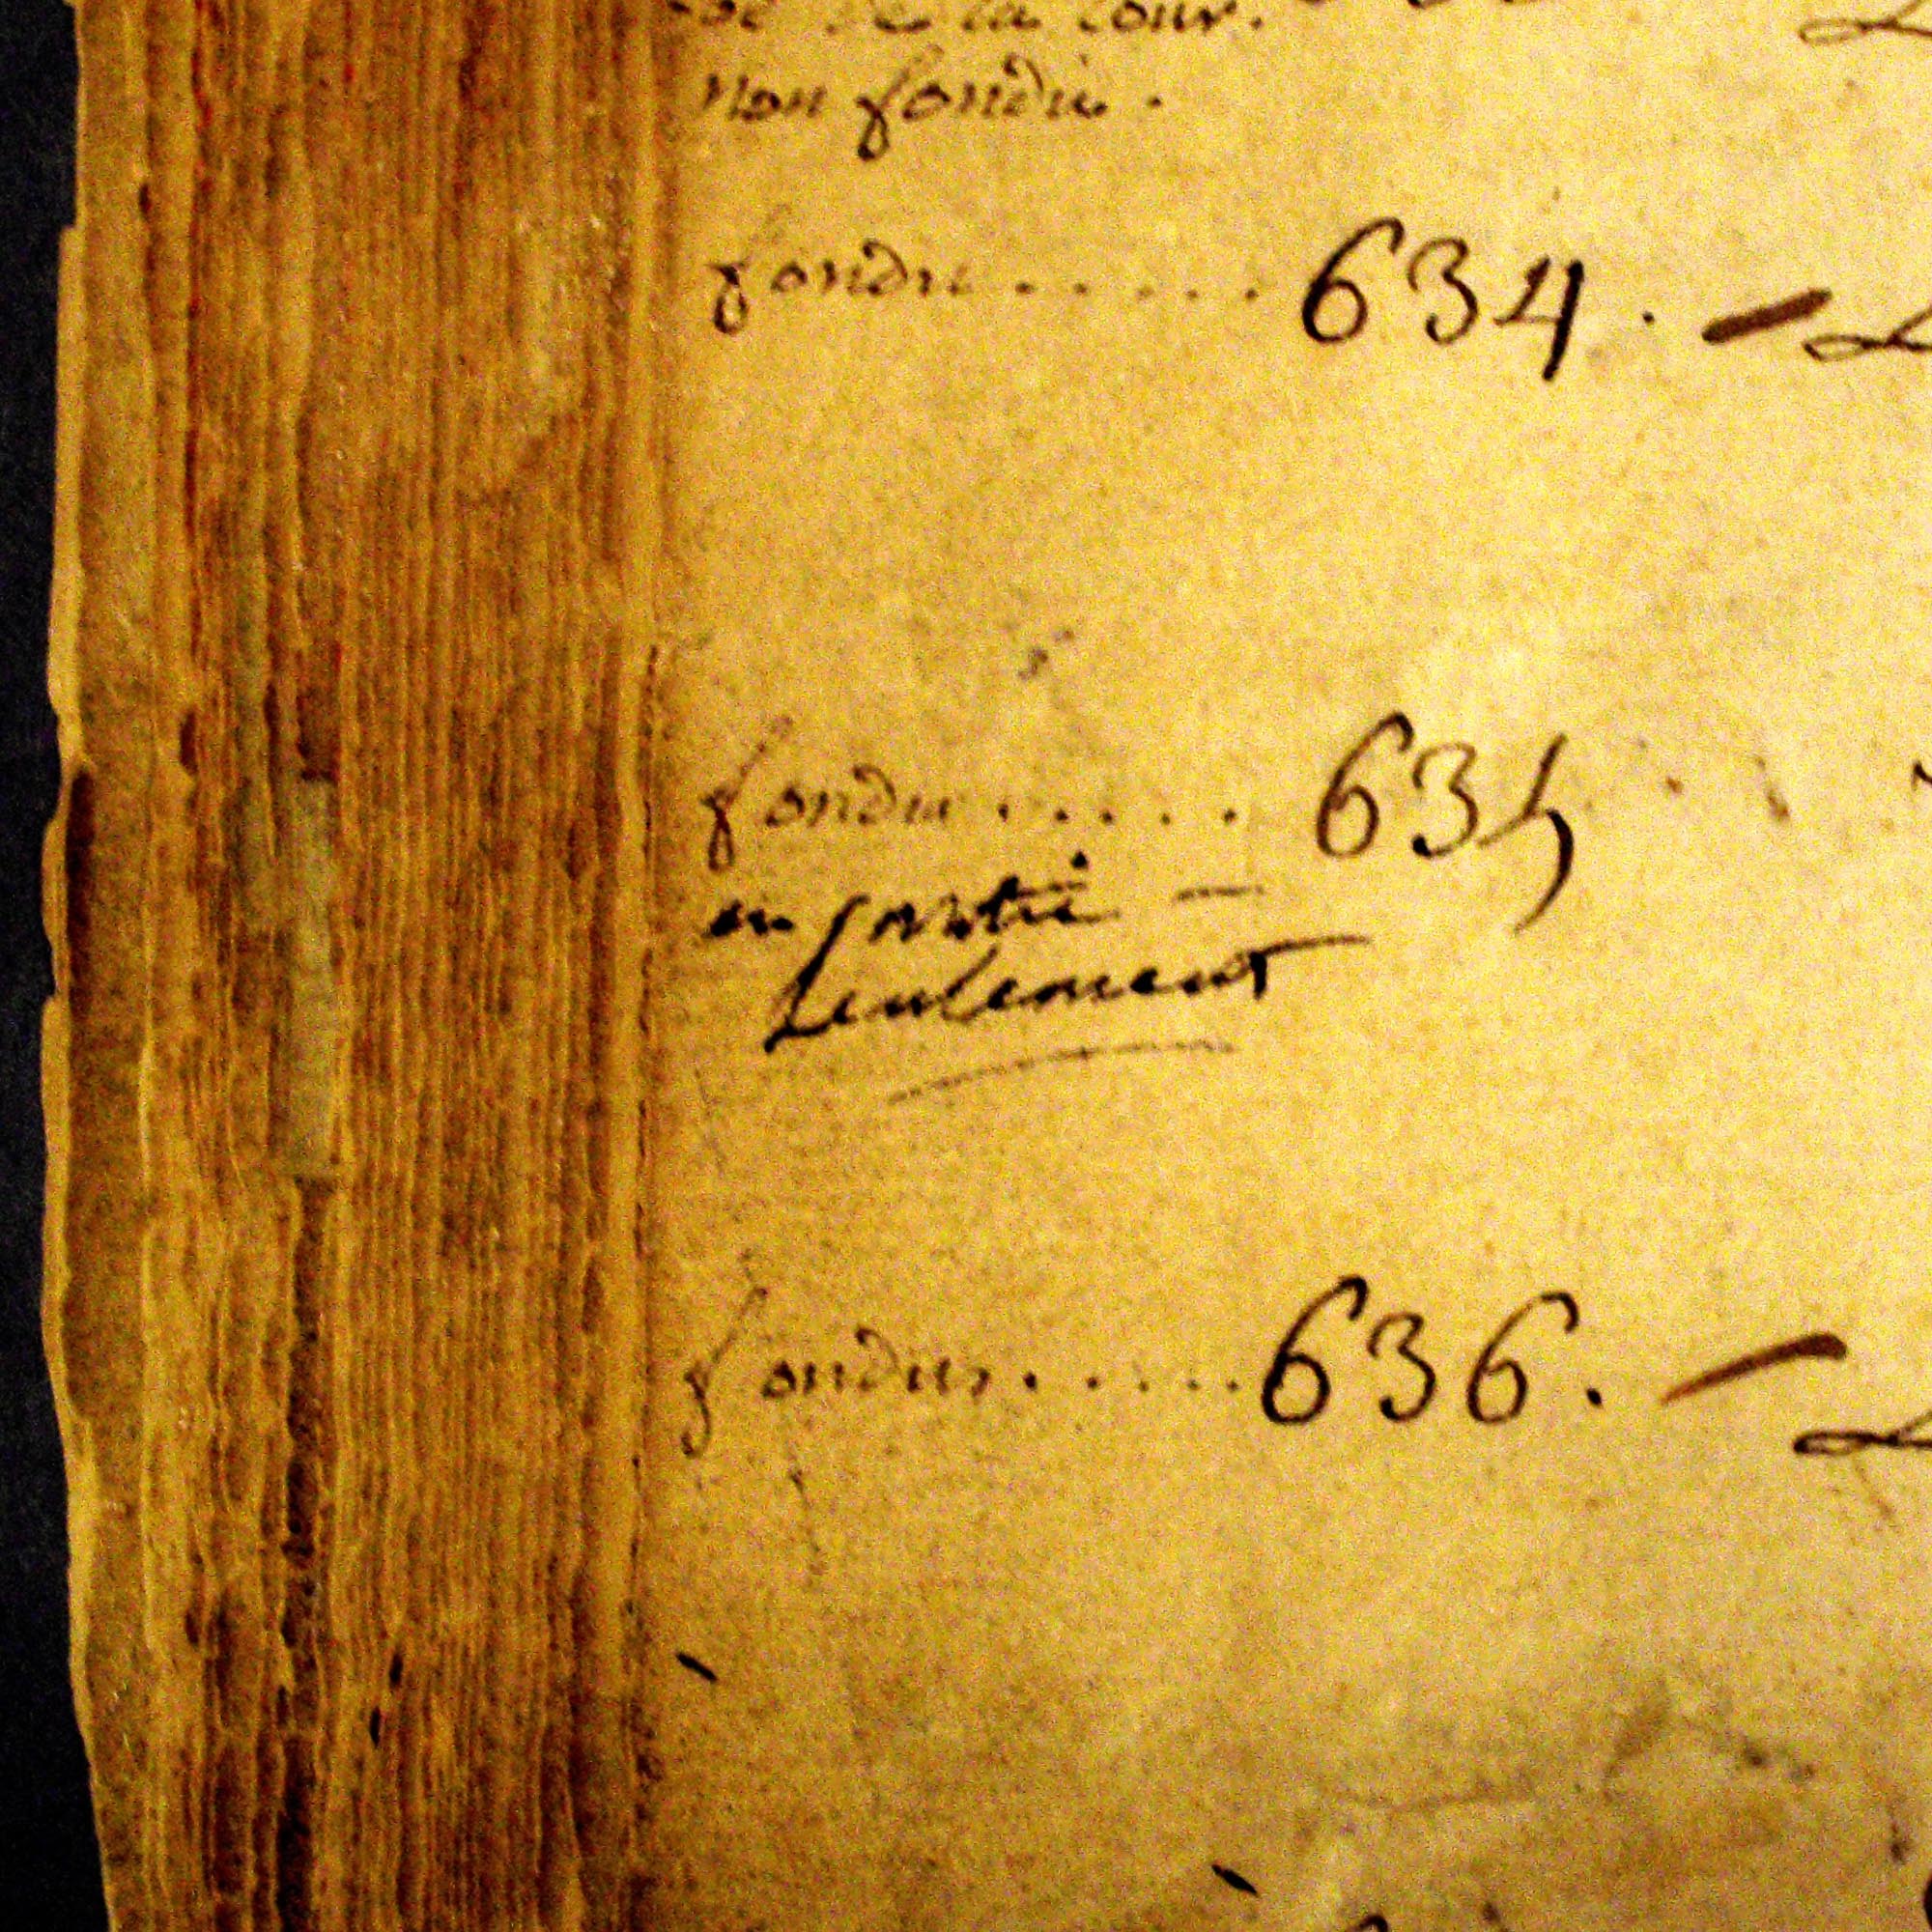 de la Cour.
non fondu.
fondu...... 634.
fondu..... 635
en partie —
seulement
fondus...... 636.